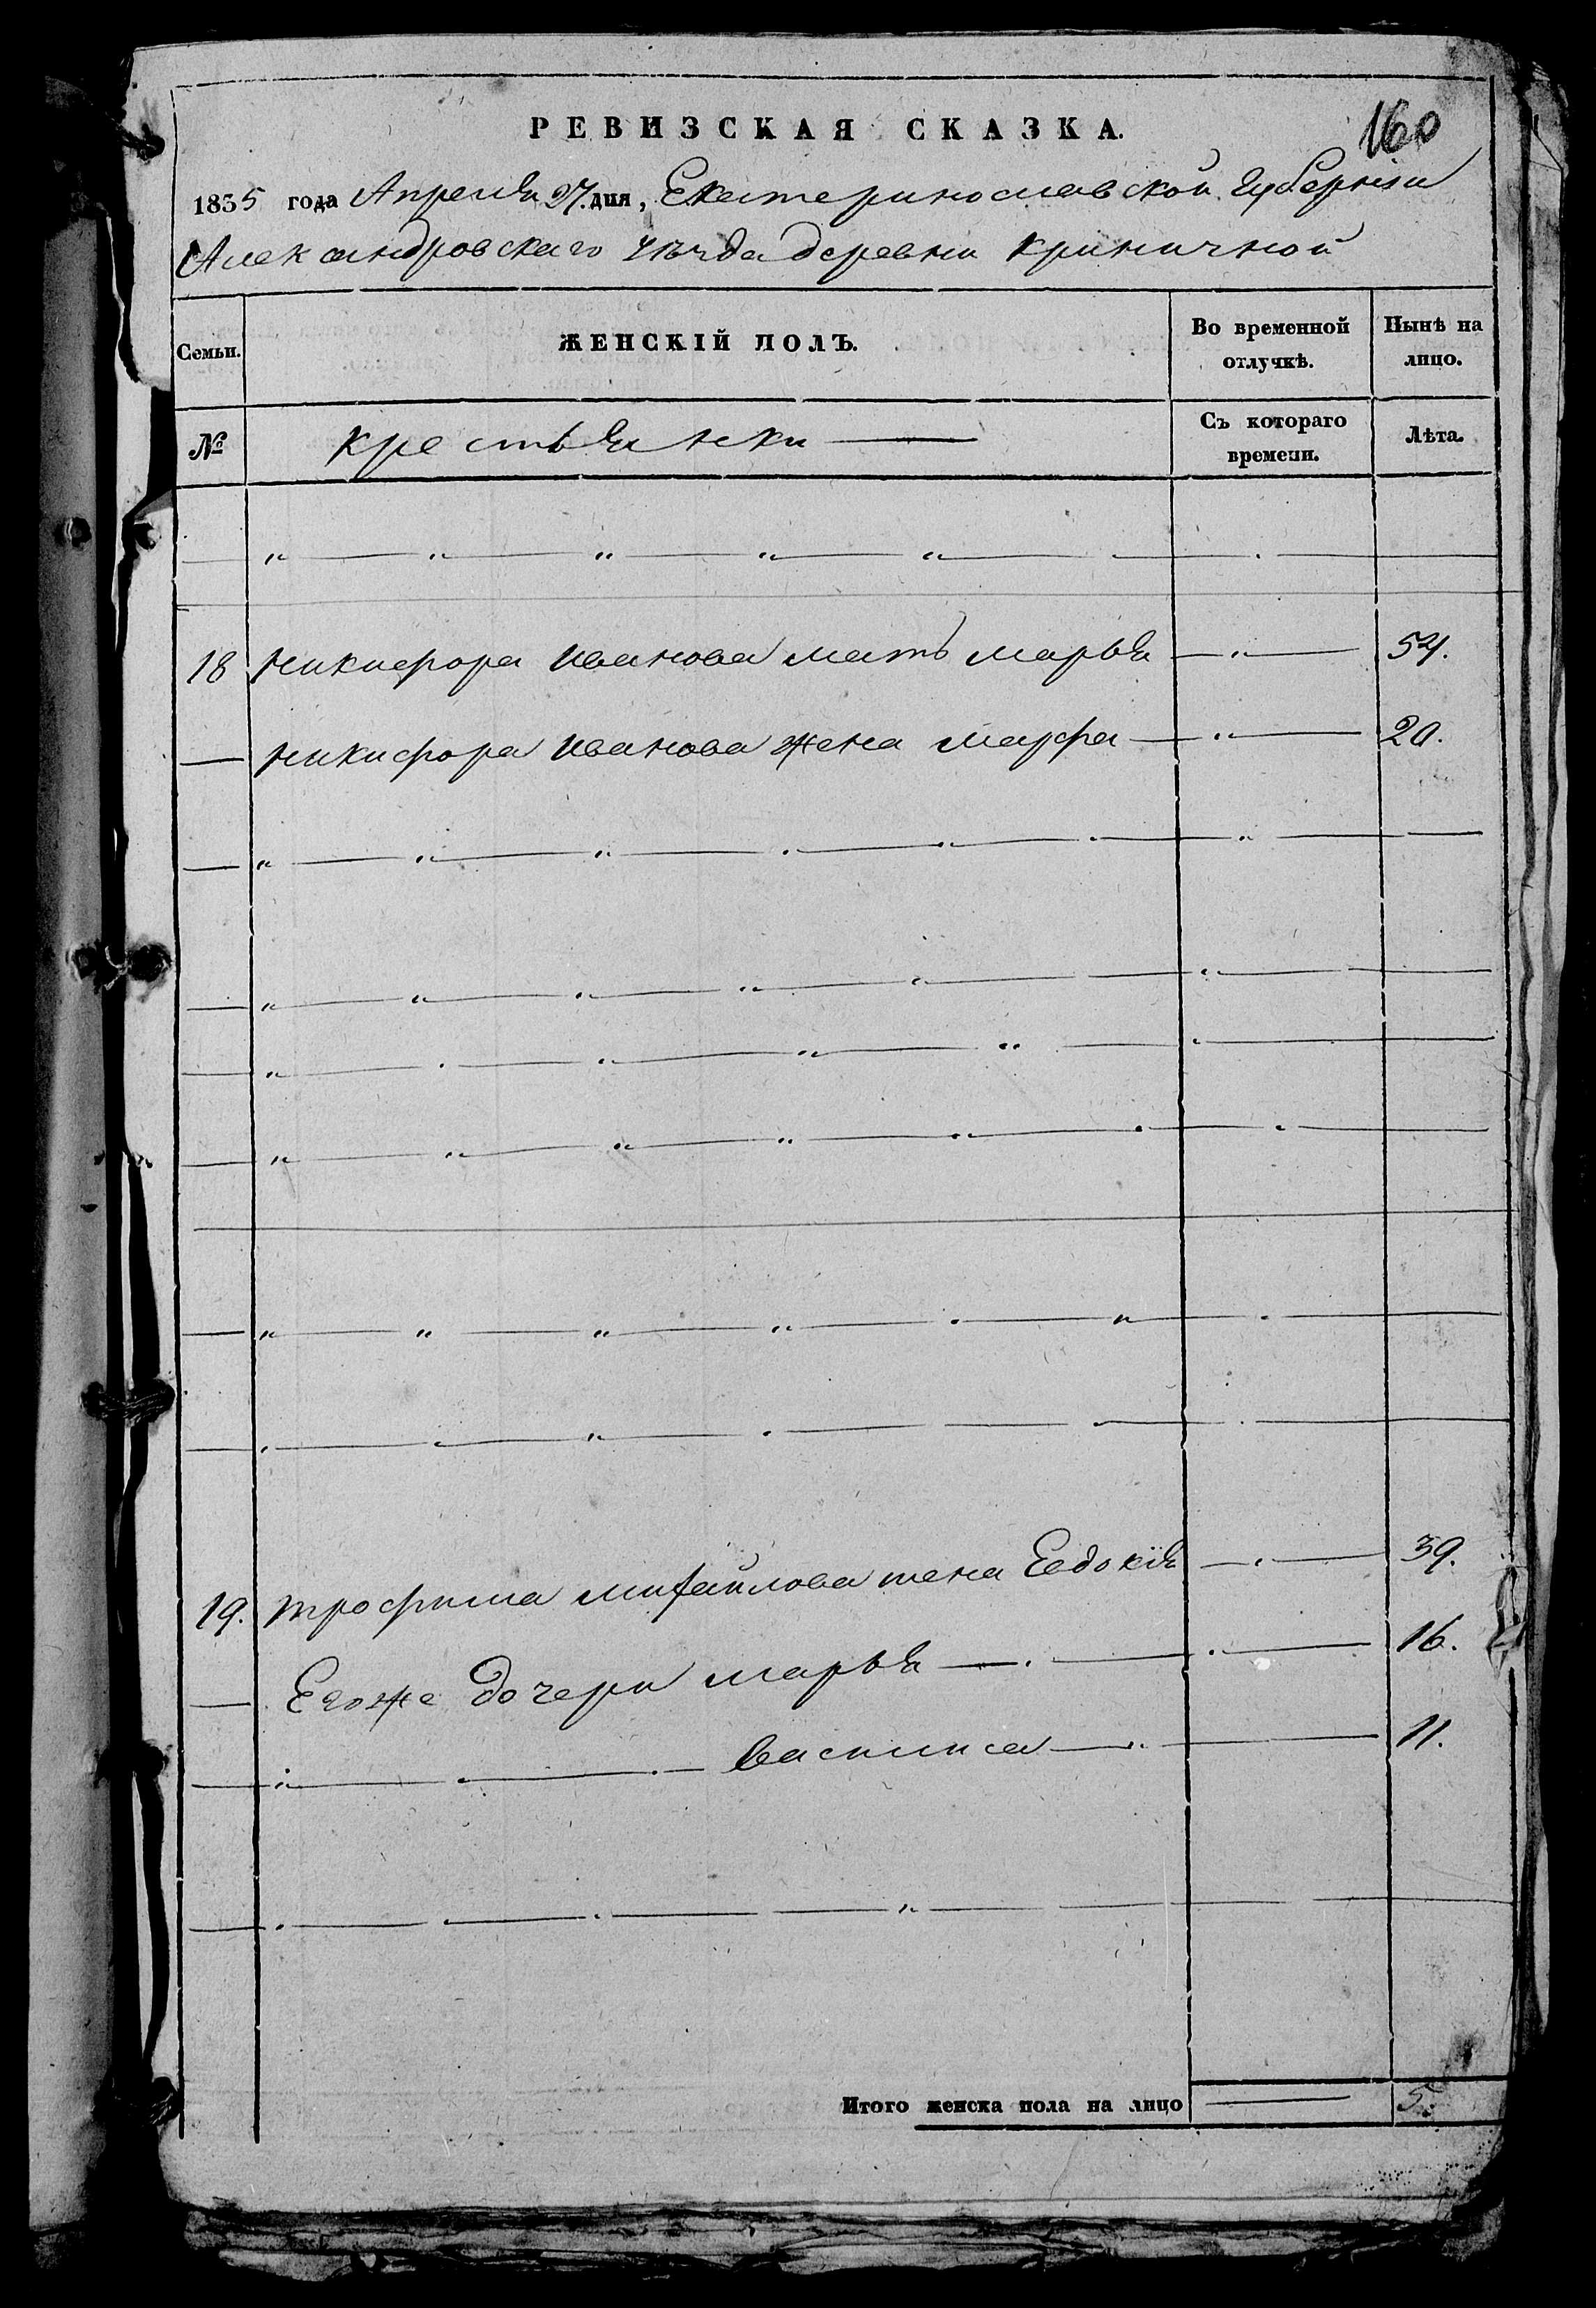 160
РЕВИЗСКАЯ СКАЗКА.
1835 года Апреля 27. дня, Екатеринославской Губернiи
Александровскаго уѣзда деревни Криничной
Семьи.
ЖЕНСКІЙ ПОЛЪ.
Во временной отлучкѣ.
Нынѣ на лицо.
№
крестьянки
Съ котораго времени.
Лѣта.
18 Никифора Иванова мать марья 54.
Никифора Иванова жена марфа 20.
19. трофима михайлова жена Евдокiя 39.
Егоже дочери марья 16.
василиса 11.
Итого женска пола на лицо 5.